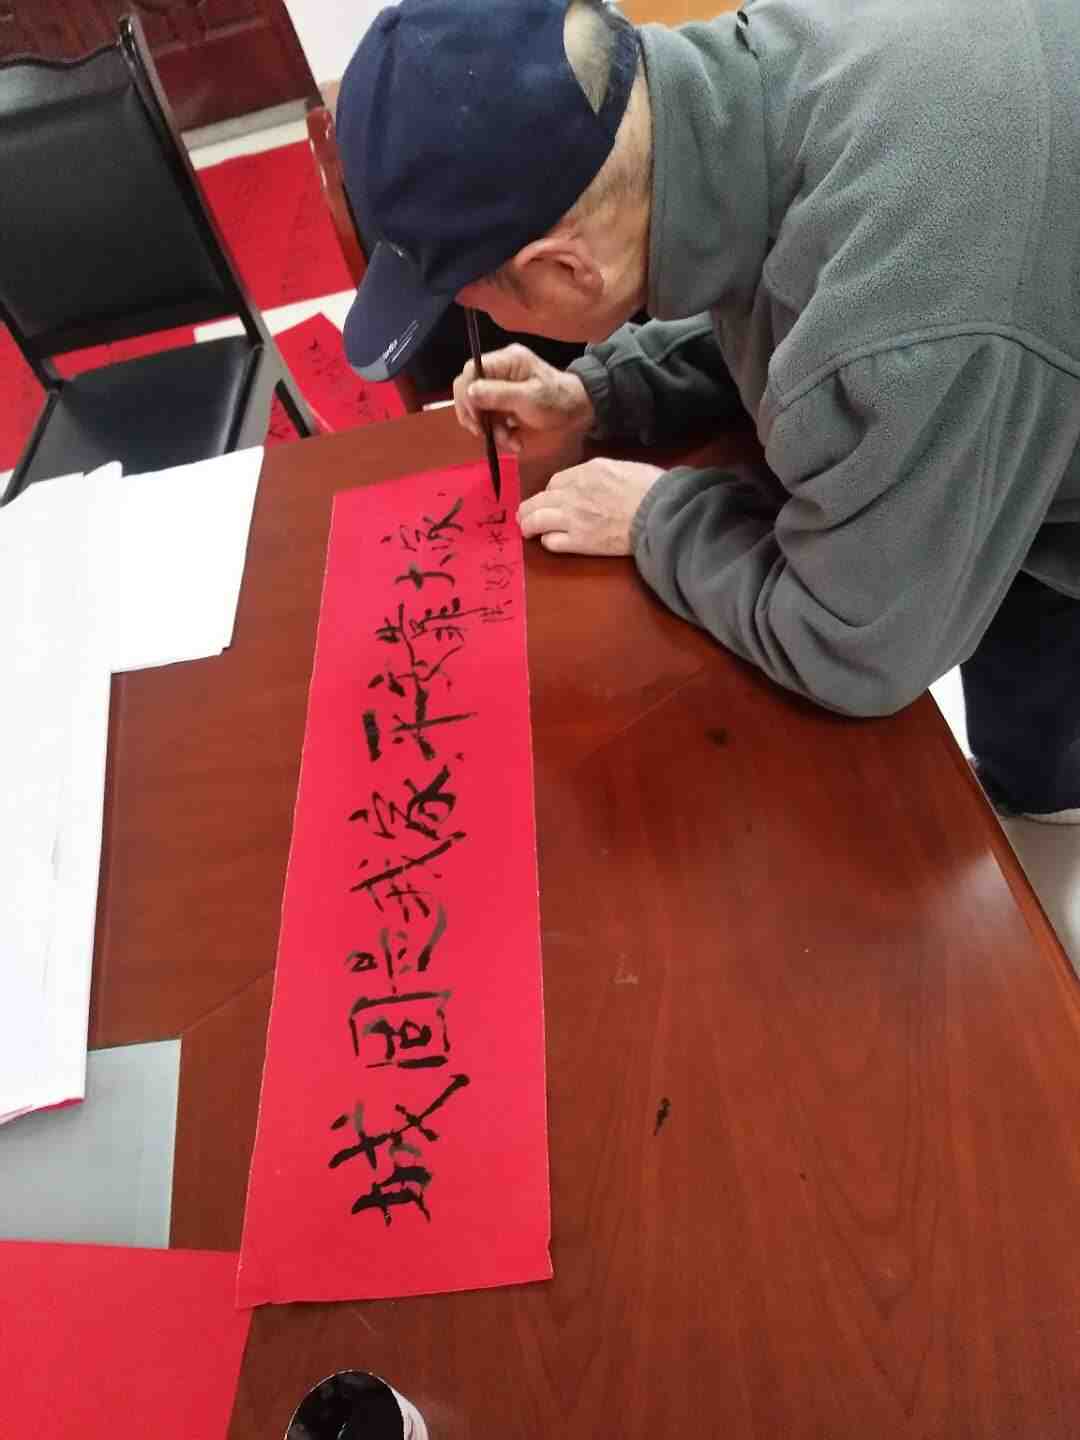 城固是我家平安靠大家